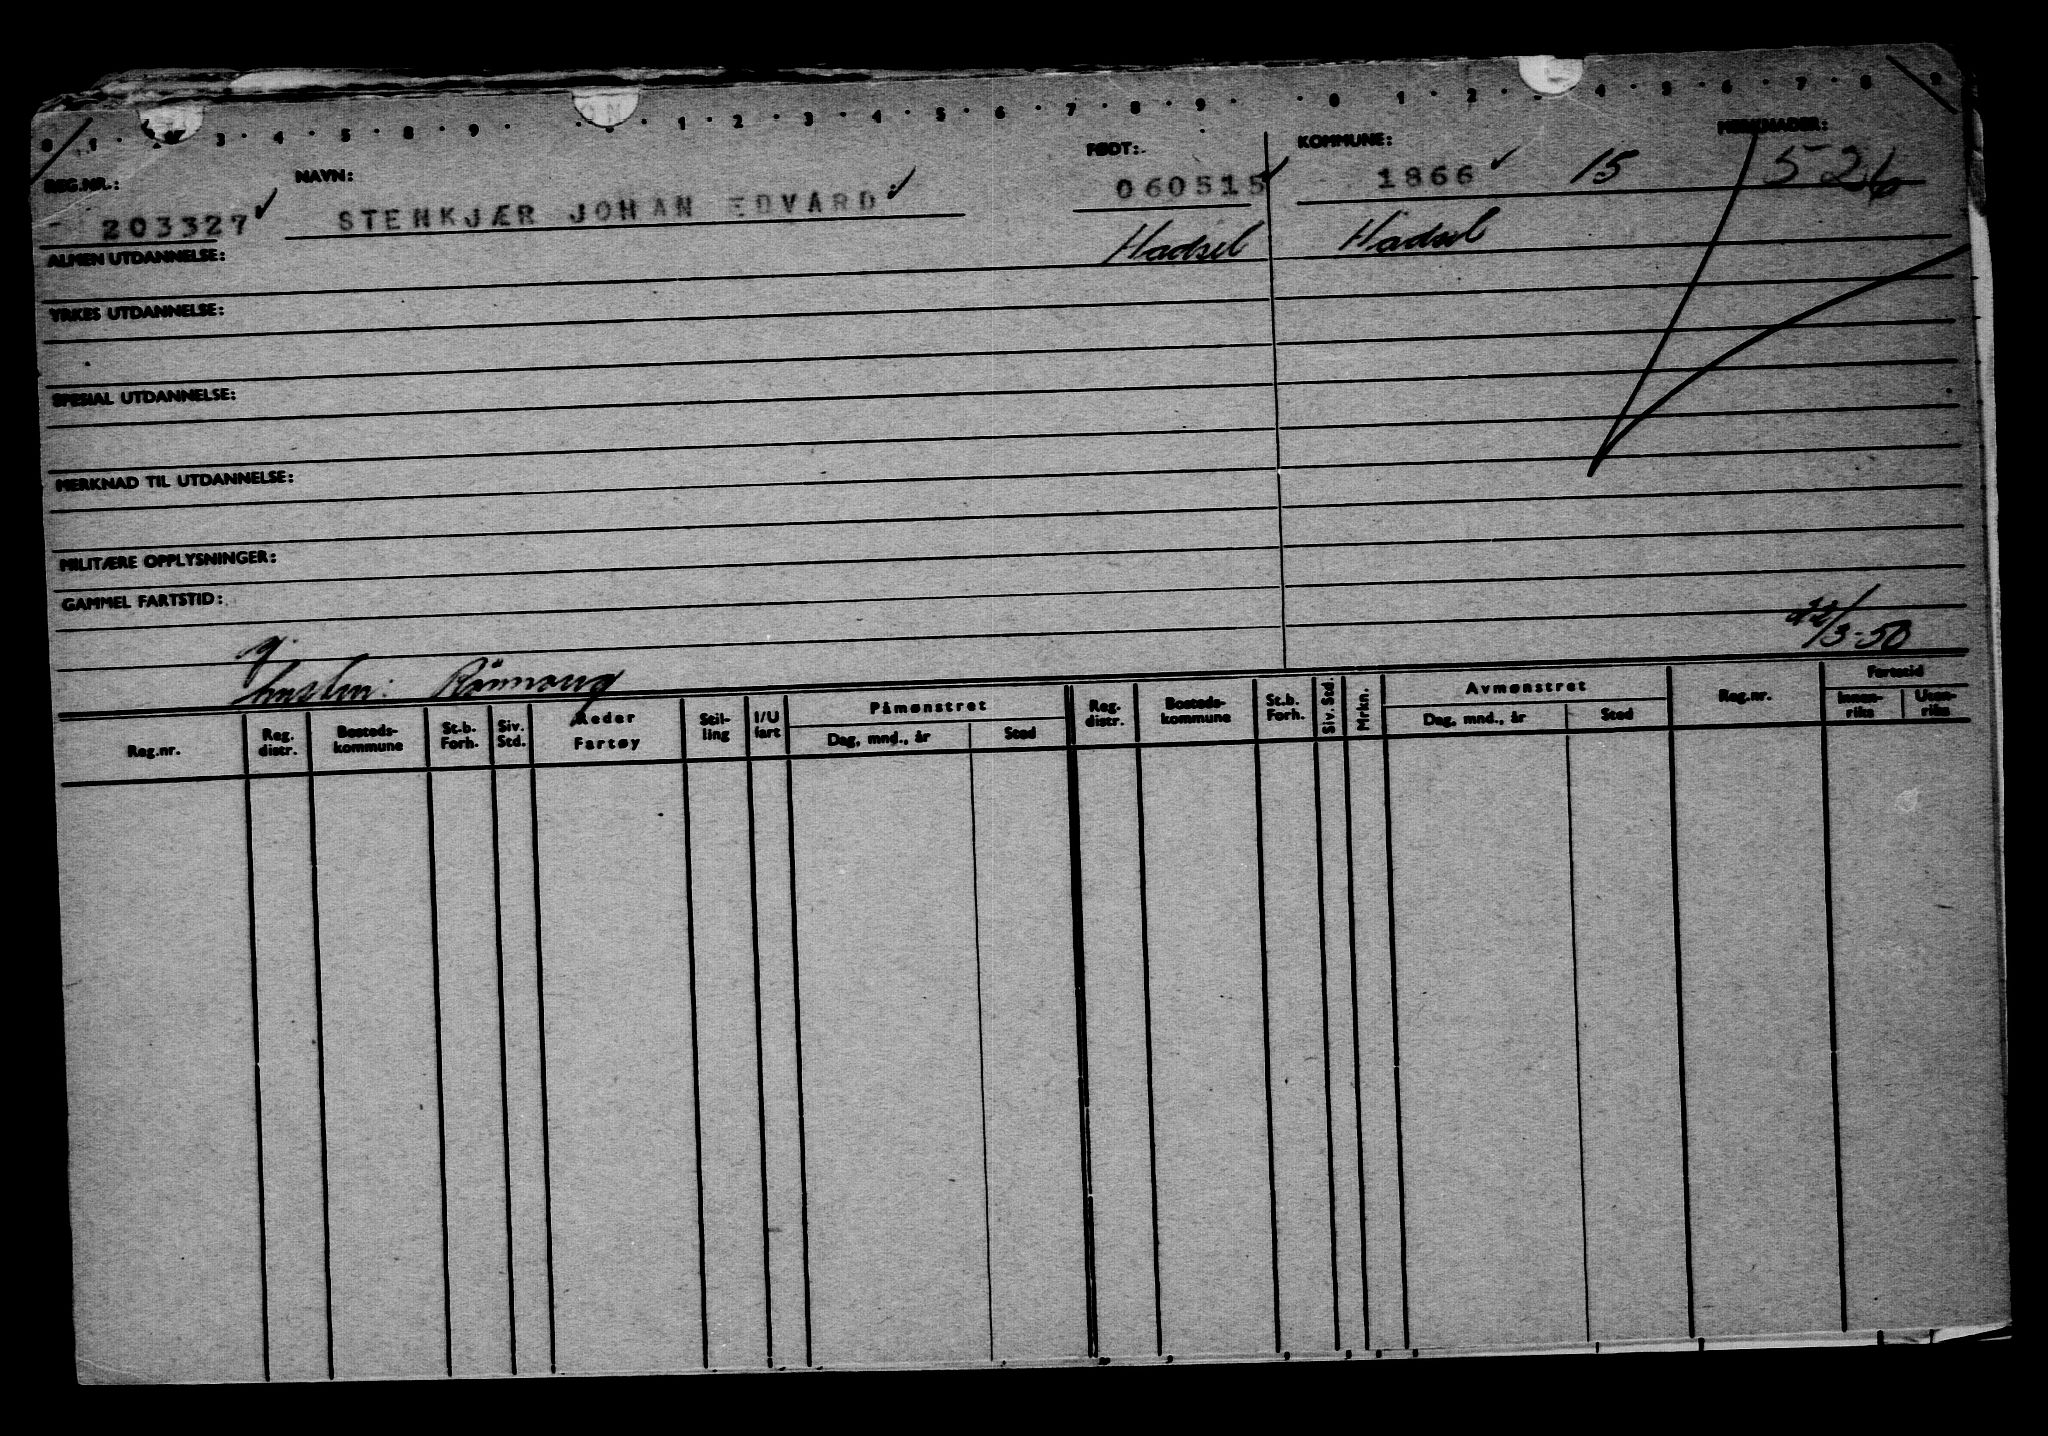 0 1 · 3 · 4 · 5 · 8 · 9 · · 1 · 2 · 3 · 4 · 5 · 6 · 7 · 8 · 9 · · 0 1 · 2 · 4 · 5 · 6 · 7 · 8 9
REG.NR.: NAVN: FØDT: KOMMUNE: MERKNADER:
203327 STENKJÆR JOHAN EDVARD 060515 1866 15 526
Hadsel Hadsel
ALMEN UTDANNELSE:
YRKES UTDANNELSE:
SPESIAL UTDANNELSE:
MERKNAD TIL UTDANNELSE:
MILITÆRE OPPLYSNINGER:
GAMMEL FARTSTID:
/3-50
Reg.nr. Reg. distr. Bosteds-kommune St.b. Forh. Siv. Std. Reder Fartøy Stil-ling I/U fart Påmønstret Dag, mnd., år Sted Reg. distr. Bosteds-kommune St.b. Forh. Siv. Std. Mrkn. Avmønstret Dag, mnd., år Sted Reg.nr. Fartstid Innen-riks Uten-riks